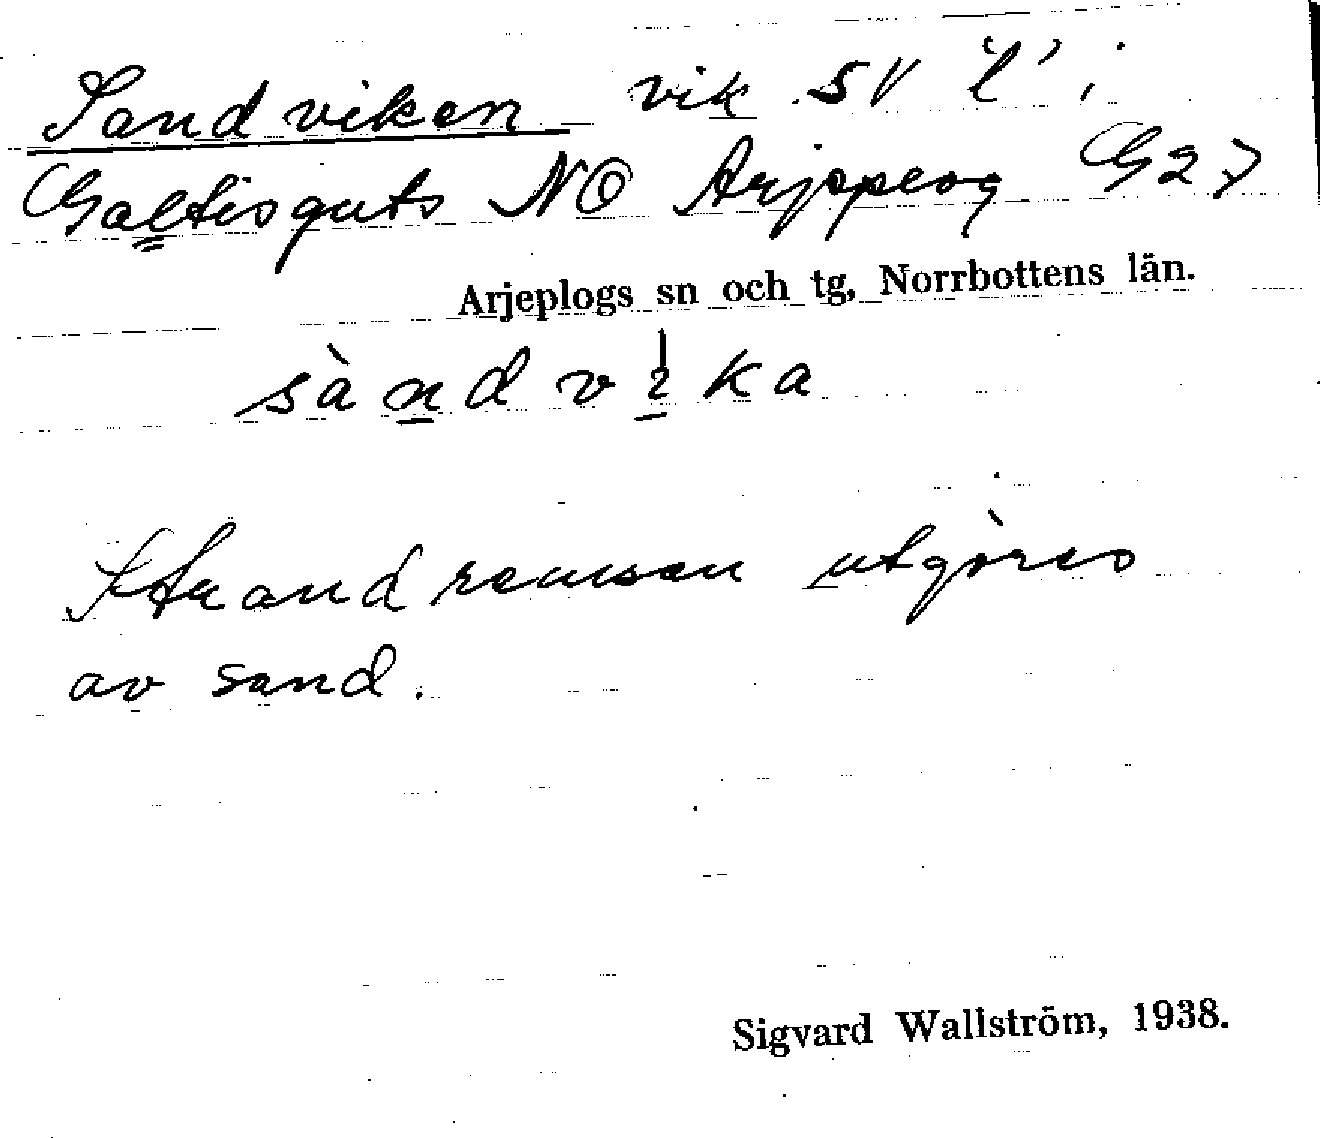 Sandviken vik SV 'l' i
Galtisguts NO Arjeplog G27
Arjeplogs sn och tg, Norrbottens län.
sàndvika
Strandremsan utgöres
av sand.
Sigvard Wallström, 1938.